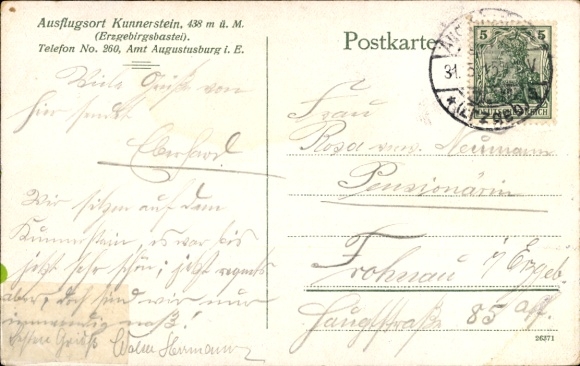 Ausflugsort Kunnerstein, 438 m ü. M.
(Erzgebirgsbastei).
Telefon No. 260, Amt Augustusburg i. E.
Postkarte
5 5
DEUTSCHES REICH
31.
(ERZGEB.)
Viele Grüße von
hier sendet
Eberhard.
Wir sitzen auf dem
Kunnerstein, es war bis
jetzt sehr schön; jetzt regnets
aber, doch sind wir nur
innwendig naß!
Grüße Herrmann
Frau
Rosa verw. Neumann
Pensionärin
Frohnau i/Erzgeb.
Hauptstraße 85
26371